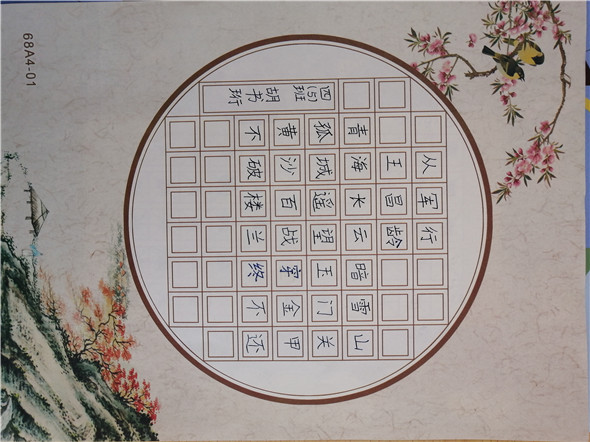 从军行
王昌龄
青海长云暗雪山
孤城遥望玉门关
黄沙百战穿金甲
不破楼兰终不还
四(5)班胡书珩
68A4-01